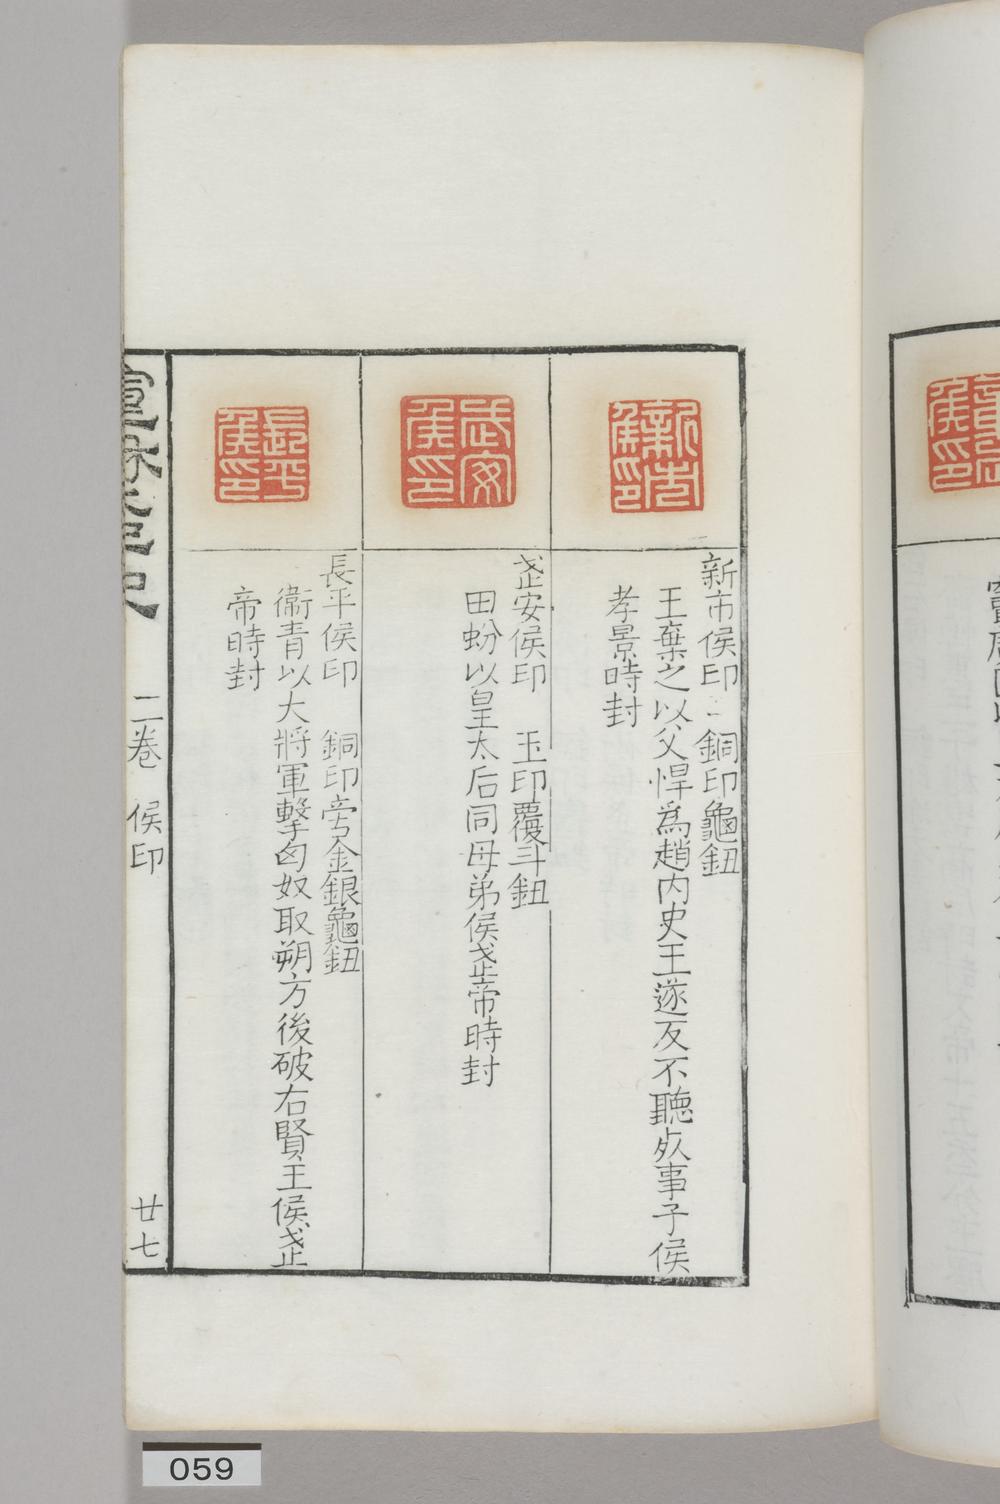 新市侯印
新市侯印 銅印龜鈕
王棄之以父悍為趙内史王遂反不聽𠩄事子侯
孝景時封
武安侯印
武安侯印 玉印覆斗鈕
田蚡以皇太后同母弟侯武帝時封
長平侯印
長平侯印 銅印旁金銀龜鈕
衞青以大將軍擊匈奴取朔方後破右賢王侯武
帝時封
二卷 侯印
廿七
059